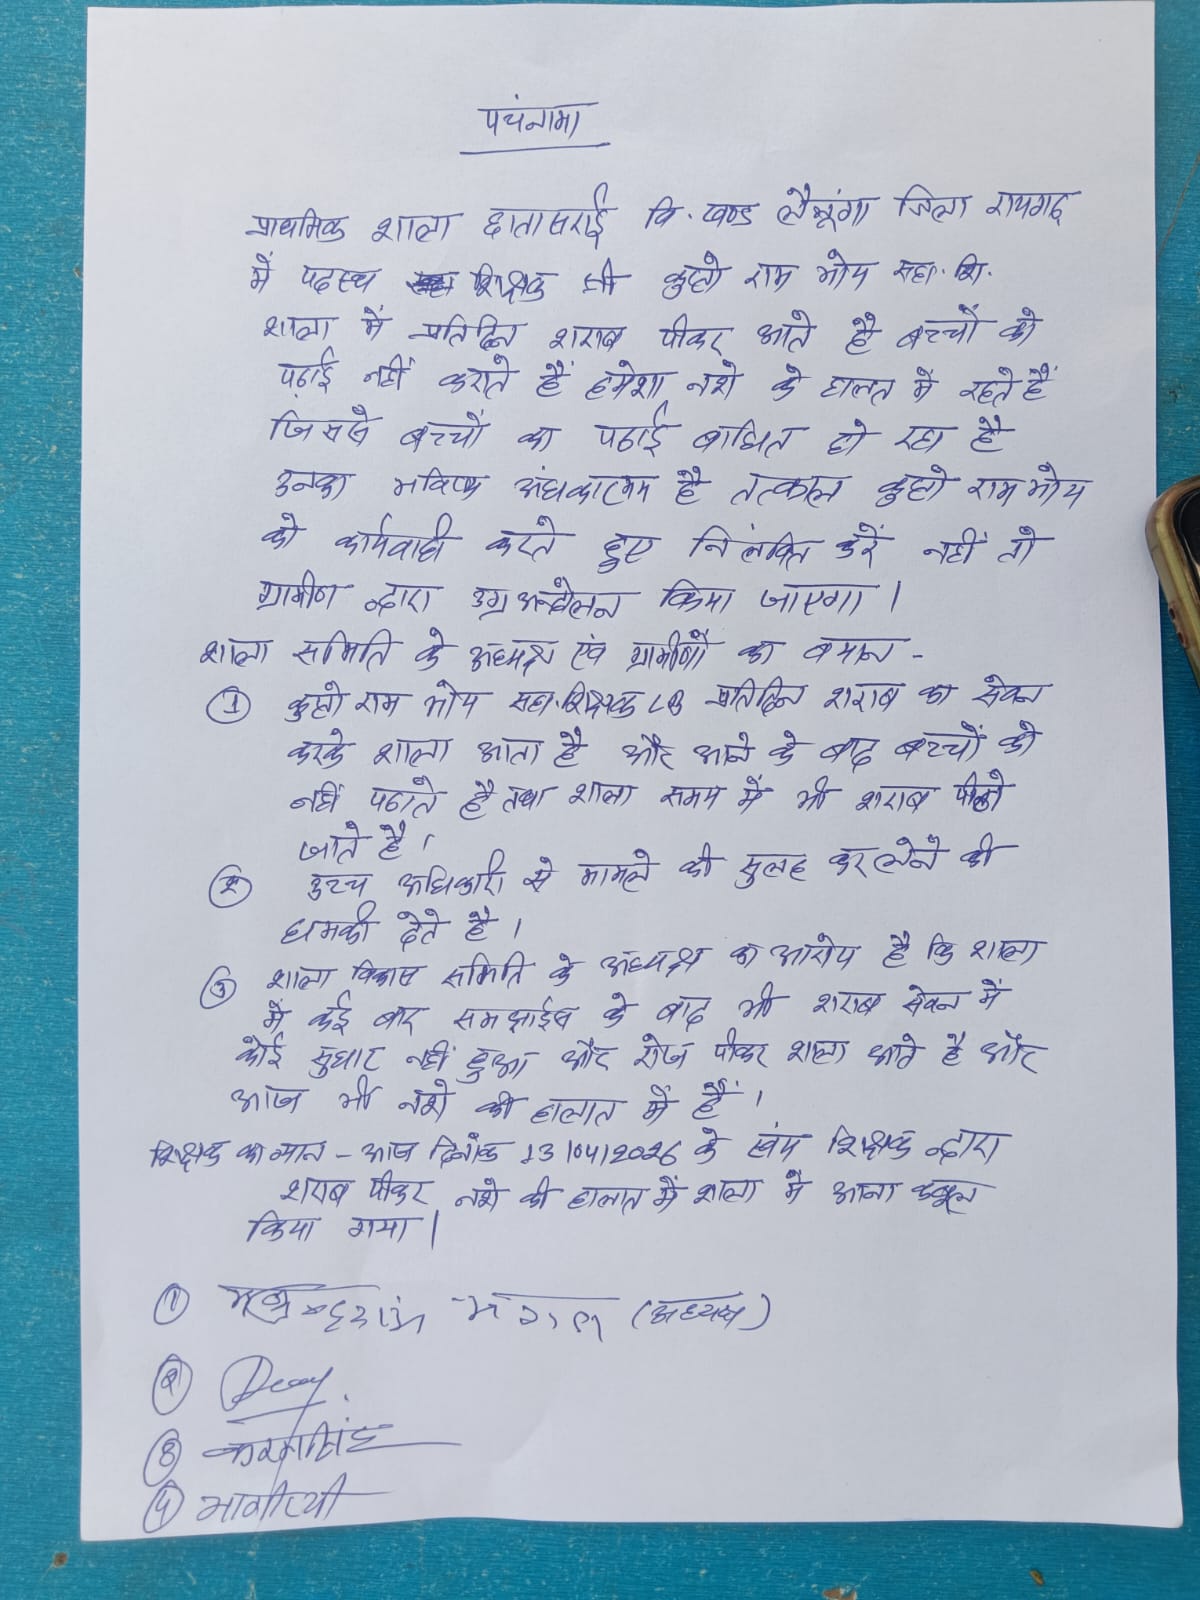 पचंनामा
प्राथमिक शाला छातासराई वि. खण्ड लैलूंगा जिला रायगढ
में पदस्थ शिक्षक श्री कुहो राम भोय सहा. शि.
शाला में प्रतिदिन शराब पीकर आते है बच्चों को
पढाई नहीं कराते हैं हमेशा नशे के हालत में रहते हैं
जिससे बच्चों का पढाई बाधित हो रहा है
उनका भविष्य अंधकारमय है तत्काल कुहो राम भोय
को कार्यवाही करते हुए निलंबित करें नहीं तो
ग्रामीण द्वारा उग्र अन्दोलन किया जाएगा।
शाला समिति के अध्यक्ष एवं ग्रामीणों का बयान -
① कुहो राम भोय सहा. शिक्षक LB प्रतिदिन शराब का सेवन
करके शाला आता है और आने के बाद बच्चों को
नहीं पढाते है तथा शाला समय में भी शराब पीने
जाते है।
② उच्च अधिकारी से मामले की सुलह कर लेने की
धमकी देते है।
③ शाला विकास समिति के अध्यक्ष का आरोप है कि शाला
में कई बार समझाईस के बाद भी शराब सेवन में
कोई सुधार नहीं हुआ और रोज पीकर शाला आते है और
आज भी नशे की हालात में हैं।
शिक्षक का ब्यान - आज दिनाँक 13/04/2026 के स्वंय शिक्षक द्वारा
शराब पीकर नशे की हालात में शाला में आना कबूल
किया गया।
① (अध्यक्ष)
②
③ करमसिंह
④ भागीरथी